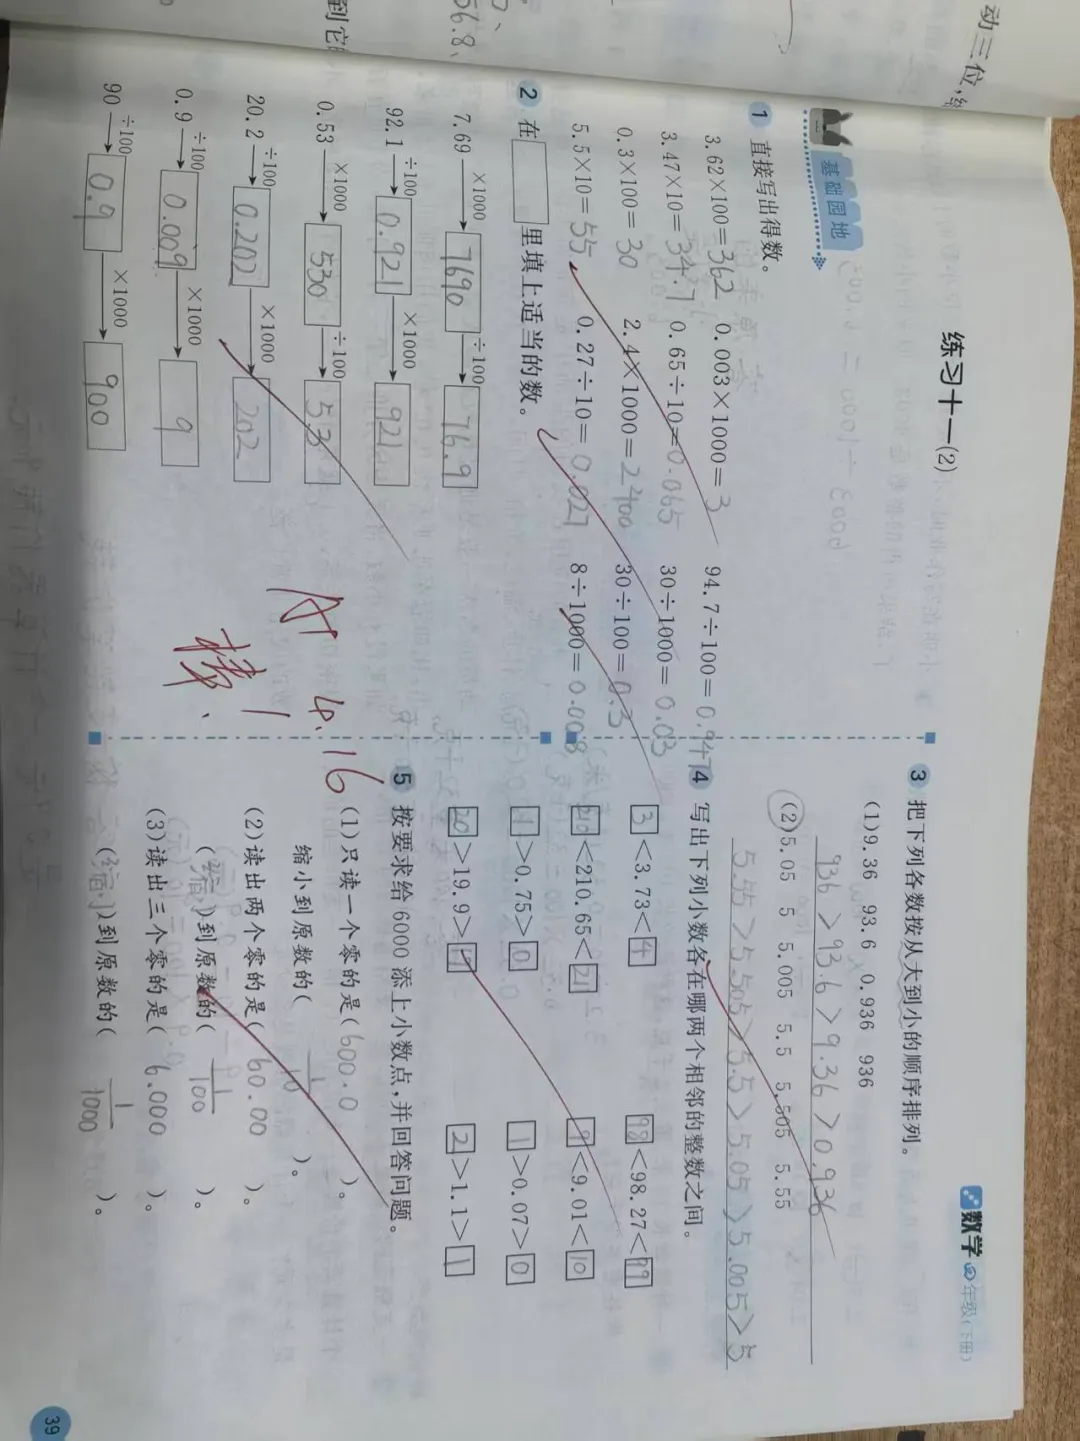 动三位,
到它
56.8、
练习十一(2)
数学 四年级(下册)
基础园地
1 直接写出得数。
3.62×100=362 0.003×1000=3 94.7÷100=0.947
3.47×10=34.7 0.65÷10=0.065 30÷1000=0.03
0.3×100=30 2.4×1000=2400 30÷100=0.3
5.5×10=55 0.27÷10=0.027 8÷1000=0.008
2 在 里填上适当的数。
7.69 ×1000 7690 ÷100 76.9
92.1 ÷100 0.921 ×1000 921
0.53 ×1000 530 ÷100 5.3
20.2 ÷100 0.202 ×1000 202
0.9 ÷100 0.009 ×1000 9
90 ÷100 0.9 ×1000 900
A+ 4.16
棒!
3 把下列各数按从大到小的顺序排列。
(1)9.36 93.6 0.936 936
936>93.6>9.36>0.936
(2)5.05 5 5.005 5.5 5.505 5.55
5.55>5.505>5.5>5.05>5.005>5
4 写出下列小数各在哪两个相邻的整数之间。
3<3.73<4 98<98.27<99
210<210.65<21 9<9.01<10
1>0.75>0 1>0.07>0
20>19.9>19 2>1.1>1
5 按要求给6000添上小数点,并回答问题。
(1)只读一个零的是(600.0)。
缩小到原数的(1/10)。
(2)读出两个零的是(60.00)。
(缩小)到原数的(1/100)。
(3)读出三个零的是(6.000)。
(缩小)到原数的(1/1000)。
39